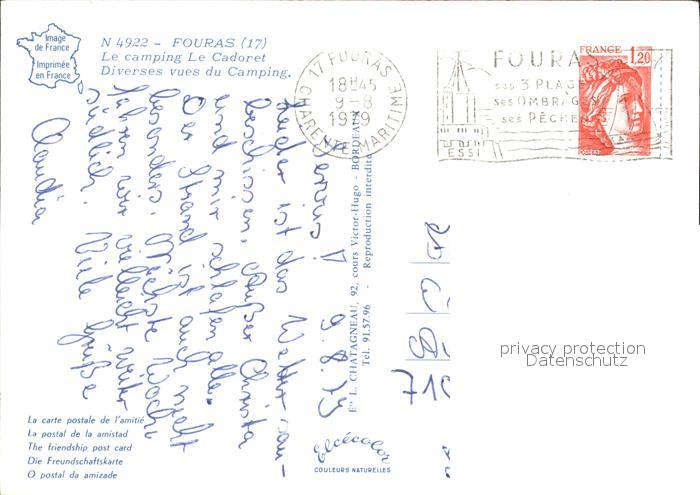 Image
de France
Imprimée
en France
N 4922 - FOURAS (17)
Le camping Le Cadoret
Diverses vues du Camping.
17 FOURAS
18H45
9-8
1979
CHARENTE-MARITIME
FOURA
ses 3 PLAGES
ses OMBRAGES
ses PÊCHE
ESSI
FRANCE 1,20
POSTES
Servus! 9.8.79
Leider ist das Wetter sau-
beschissen. Außer Christa
und mir schlafen alle.
Der Strand ist auch nicht
besonders. Nächste Woche
fahren wir vielleicht weiter
südlich. Viele Grüße
Claudia
Ets L. CHATAGNEAU, 92, cours Victor-Hugo - BORDEAUX
Tél. 91.57.96 - Reproduction interdite
La carte postale de l'amitié
La postal de la amistad
The friendship post card
Die Freundschaftskarte
O postal da amizade
Elcécolor
COULEURS NATURELLES
privacy protection
Datenschutz